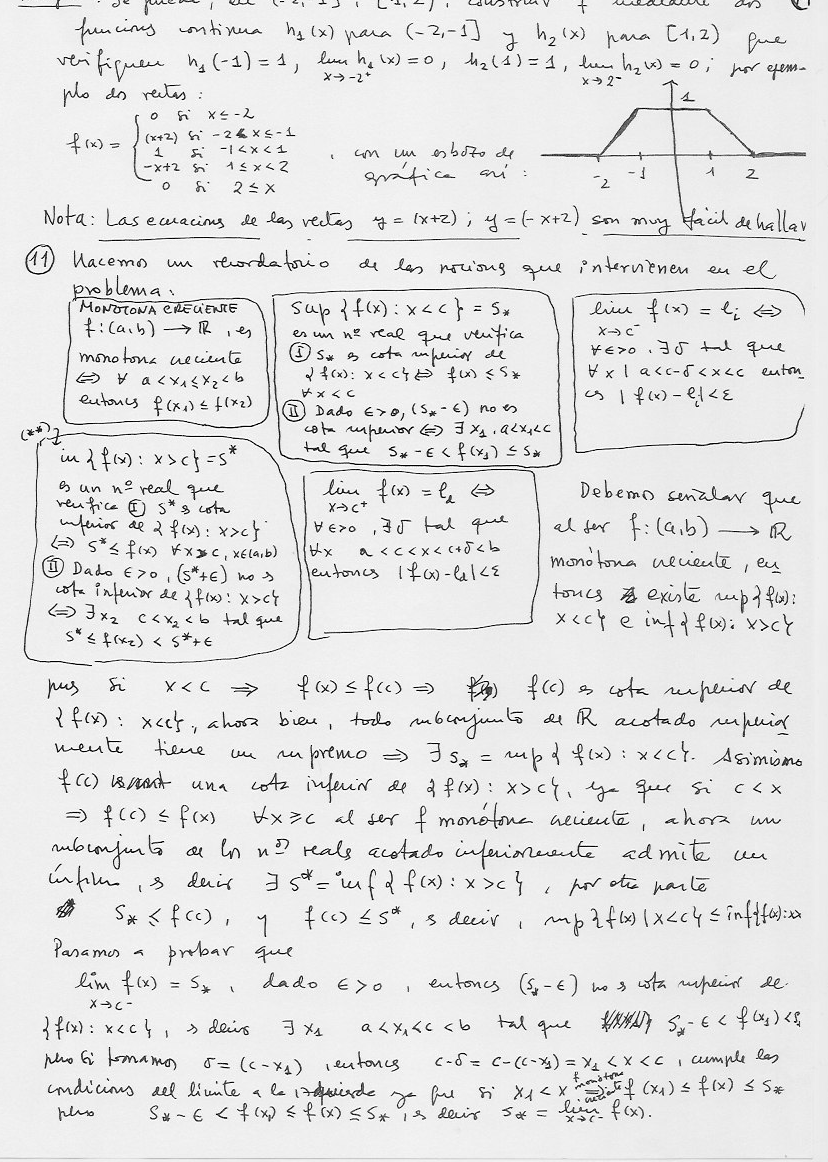 Se puede, en (-2,-1] y [1,2), construir f mediante dos
funcions continua h₁(x) para (-2,-1] y h₂(x) para [1,2) que
verifiquen h₁(-1) = 1, lim h₁(x) = 0, h₂(1) = 1, lim h₂(x) = 0; por ejem-
x→-2⁺ x→2⁻
plo dos rectas:
f(x) = {
0 si x ≤ -2
(x+2) si -2 < x ≤ -1
1 si -1 < x < 1
-x+2 si 1 ≤ x < 2
0 si 2 ≤ x
, con un esbozo de
gráfica así:
1
-2 -1 1 2
Nota: Las ecuacions de las rectas y = (x+2); y = (-x+2) son muy fácil de hallar
11 Hacemos un recordatorio de las nocions que intervienen en el
problema:
MONOTONA CRECIENTE
f: (a,b) → ℝ, es
monotona creciente
⇔ ∀ a<x₁≤x₂<b
entoncs f(x₁) ≤ f(x₂)
Sup {f(x): x<c} = S*
es un nº real que verifica
I S* s cota superior de
{f(x): x<c} ⇔ f(x) ≤ S*
∀ x<c
II Dado ϵ>0, (S*-ϵ) no es
cota superior ⇔ ∃ x₁, a<x₁<c
tal que S*-ϵ < f(x₁) ≤ S*
lim f(x) = lᵢ ⇔
x→c⁻
∀ϵ>0, ∃δ tal que
∀x | a<c-δ<x<c enton-
cs | f(x) - lᵢ| < ε
(**)
inf {f(x): x>c} = S*
es un nº real que
verifica I S* s cota
inferior de {f(x): x>c}
⇔ S* ≤ f(x) ∀x>c, x∈(a,b)
II Dado ϵ>0, (S*+ϵ) no s
cota inferior de {f(x): x>c}
⇔ ∃ x₂ c<x₂<b tal que
S* ≤ f(x₂) < S*+ϵ
lim f(x) = l_d ⇔
x→c⁺
∀ϵ>0, ∃δ tal que
∀x a<c<x<c+δ<b
entoncs |f(x)-l_d|<ε
Debemos señalar que
al ser f: (a,b) → ℝ
monótona creciente, en
toncs existe sup{f(x):
x<c} e inf{f(x): x>c}
pues si x<c ⇒ f(x) ≤ f(c) ⇒ f(c) es cota superior de
{f(x): x<c}, ahora bien, todo subconjunto de ℝ acotado superior
mente tiene un supremo ⇒ ∃ S* = sup{f(x): x<c}. Asimismo
f(c) una cota inferior de {f(x): x>c}, ya que si c<x
⇒ f(c) ≤ f(x) ∀x≥c al ser f monótona creciente, ahora un
subconjunto de los nºs reals acotado inferiormente admite un
ínfimo, s decir ∃ S* = inf{f(x): x>c}, por otra parte
S* ≤ f(c), y f(c) ≤ S*, s decir, sup{f(x) | x<c} ≤ inf{f(x): x>
Pasamos a probar que
lim f(x) = S*, dado ϵ>0, entoncs (S*-ϵ) no s cota superior de
x→c⁻
{f(x): x<c}, s decir ∃ x₁ a<x₁<c<b tal que S*-ϵ < f(x₁) < S*
pero si tomamos δ = (c-x₁), entoncs c-δ = c-(c-x₁) = x₁ < x < c, cumple las
condicions del limite a la izquierda ya que si x₁<x ⇒ f monótona creciente f(x₁) ≤ f(x) ≤ S*
pero S*-ϵ < f(x₁) ≤ f(x) ≤ S*, s decir S* = lim f(x).
x→c⁻